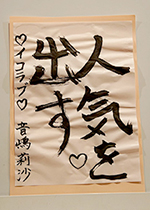 人気を
出す♡
♡イコラブ♡ 音嶋莉沙